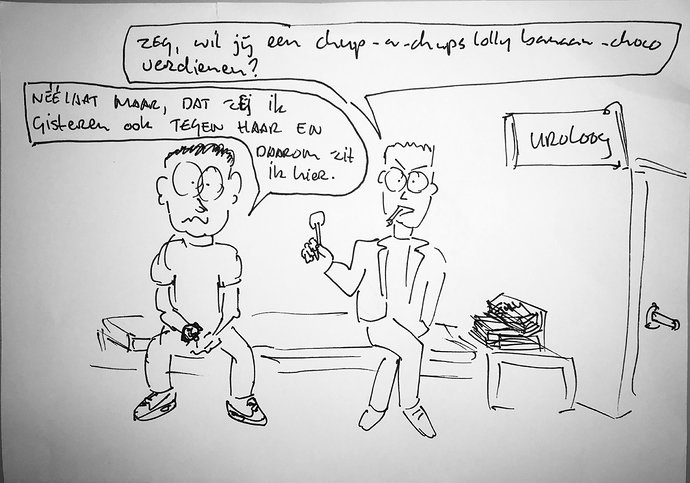 ZEG, wil jij een chup-a-chups lolly banaan-choco
verdienen?
NEE LAAT MAAR, DAT zEj ik
Gisteren ook TEGEN HAAR EN
DAAROM zit
ik hier.
UROLOOG